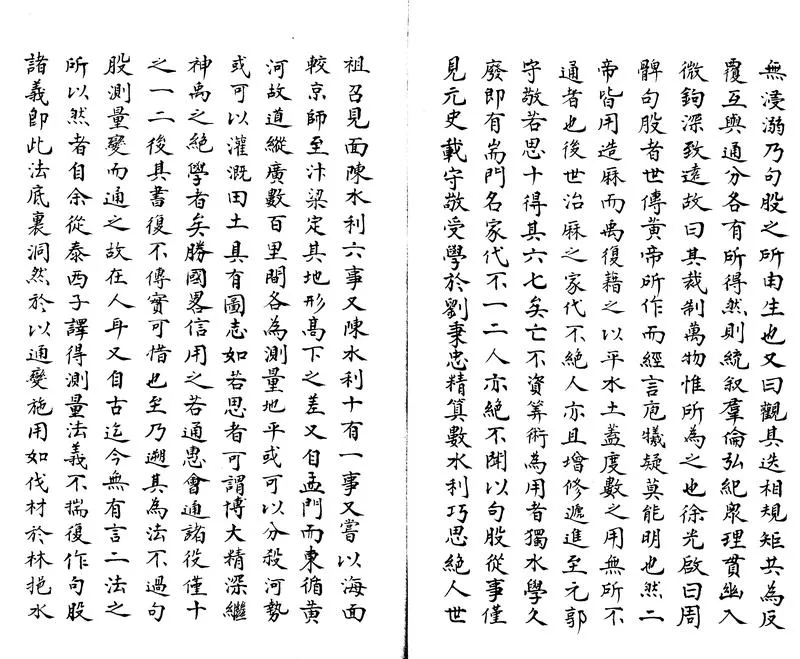 無浸溺乃句股之所由生也又曰觀其迭相規矩共為反
覆互與通分各有所得然則統叙羣倫弘紀衆理貫幽入
微鉤深致遠故曰其裁制萬物惟所為之也徐光啟曰周
髀句股者世傳黃帝所作而經言庖犧疑莫能明也然二
帝皆用造厤而禹復藉之以平水土蓋度數之用無所不
通者也後世治厤之家代不絕人亦且增修遞進至元郭
守敬若思十得其六七矣亡不資筭術為用者獨水學久
廢即有耑門名家代不一二人亦絕不聞以句股從事僅
見元史載守敬受學於劉秉忠精算數水利巧思絕人世
祖召見面陳水利六事又陳水利十有一事又嘗以海面
較京師至汴梁定其地形髙下之差又自孟門而東循黃
河故道縱廣數百里間各為測量地平或可以分殺河勢
或可以灌溉田土具有圖志如若思者可謂博大精深繼
神禹之絕學者矣勝國畧信用之若通惠會通諸役僅十
之一二後其書復不傳實可惜也至乃遡其為法不過句
股測量變而通之故在人耳又自古迄今無有言二法之
所以然者自余從泰西子譯得測量法義不揣復作句股
諸義即此法底裏洞然於以通變施用如伐材於林挹水